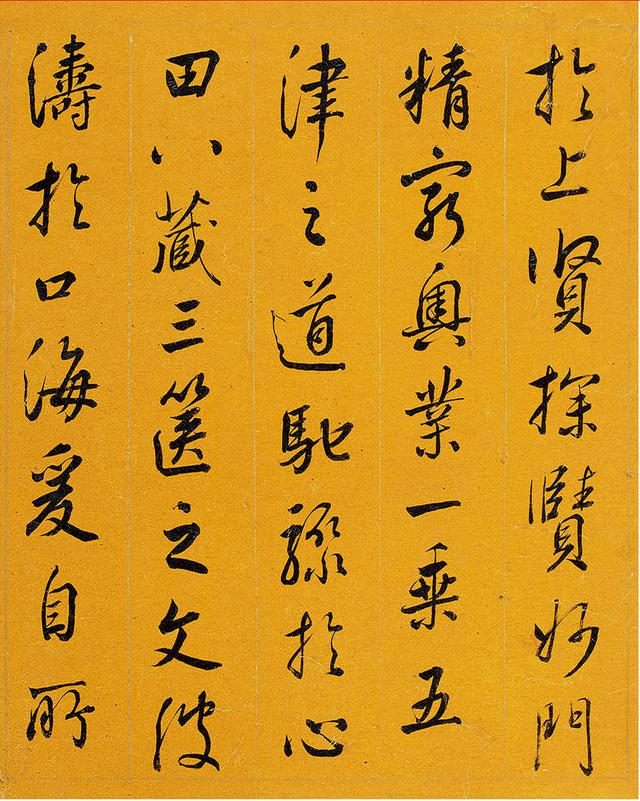 於上賢探賾妙門
精窮奧業一乘五
律之道馳驟於心
田八藏三篋之文波
濤於口海爰自所